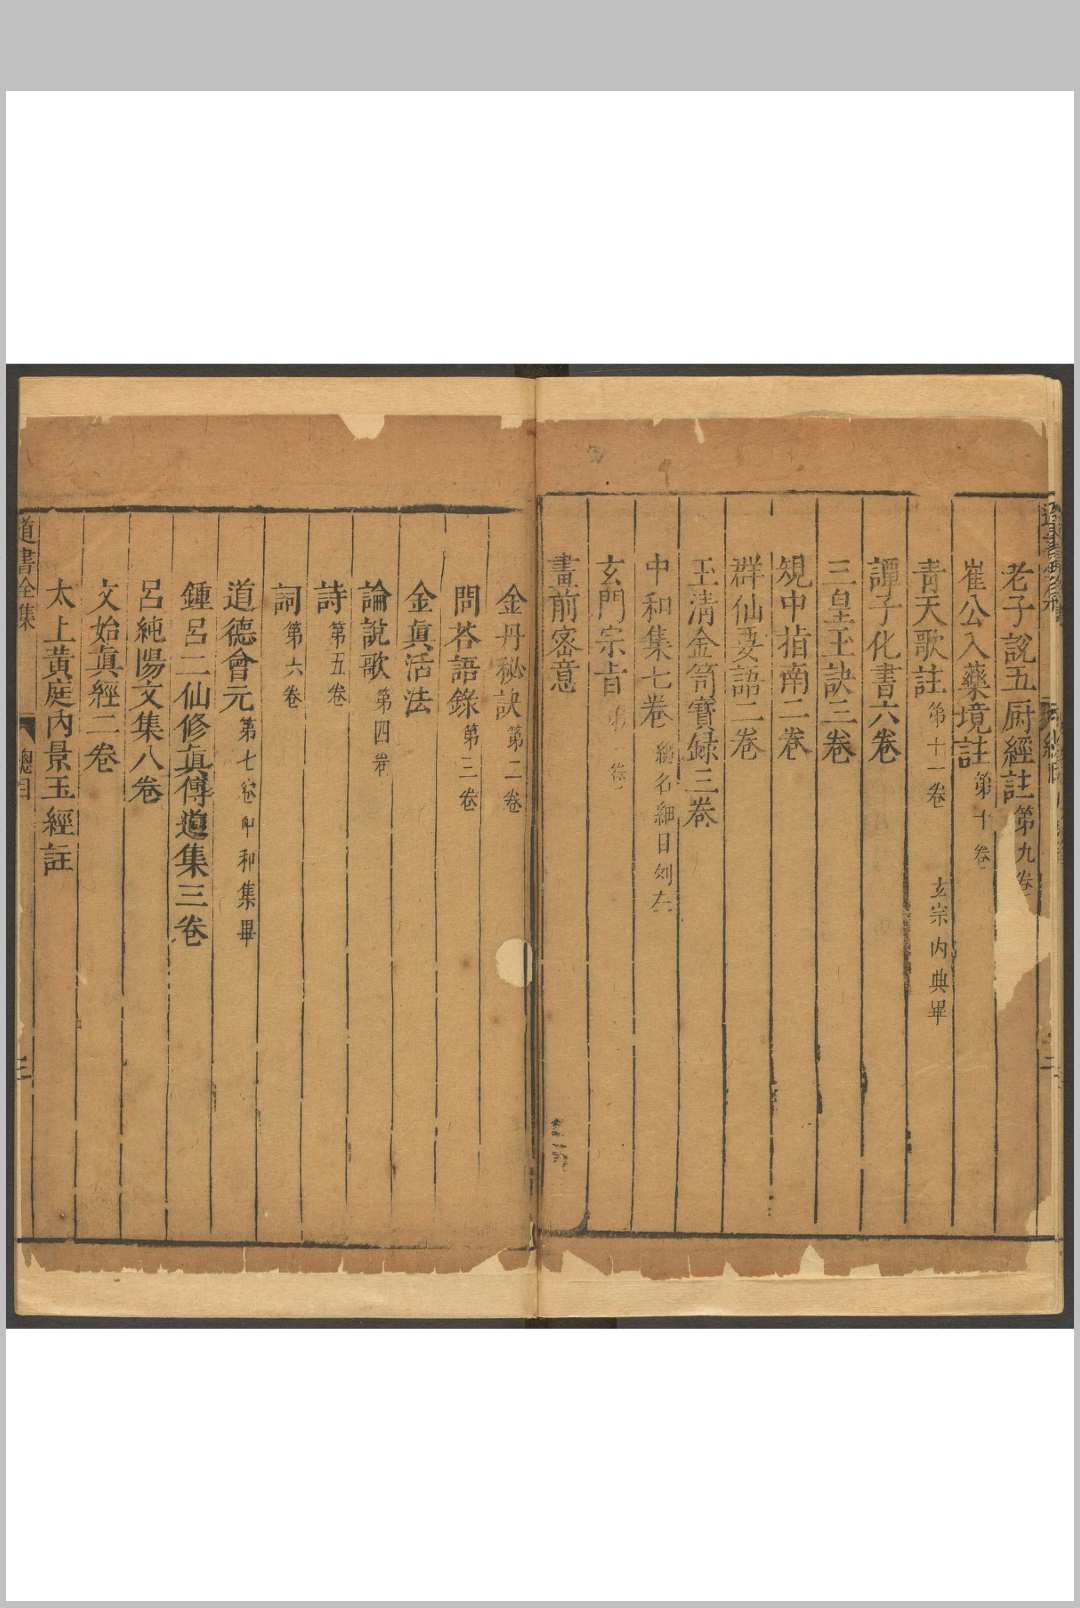 老子說五厨經註第九卷
崔公入藥境註第十卷
青天歌註第十一卷 玄宗内典畢
譚子化書六卷
三皇玉訣三卷
規中指南二卷
群仙要語二卷
玉清金笥寶録三卷
中和集七卷 總名細目列左
玄門宗旨第 卷
畫前密意
金丹秘訣第二卷
問荅語錄第三卷
金眞活法
論說歌第四卷
詩第五卷
詞第六卷
道德會元第七卷 中和集畢
鍾呂二仙修眞傳道集三卷
呂純陽文集八卷
文始眞經二卷
太上黄庭内景玉經註
道書全集 總目 三